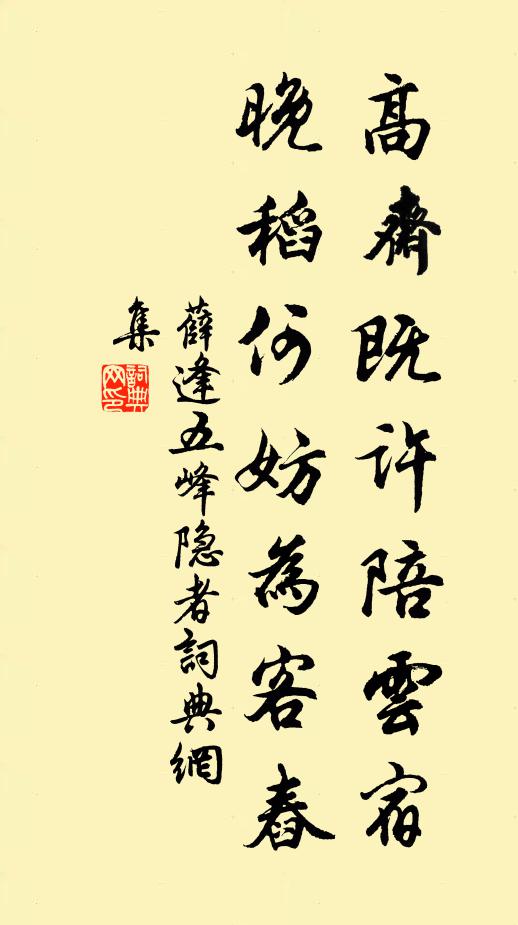 高齋既許陪雲宿
晚稻何妨為客舂
薛逢五峰隐者詞典網
集
詞典
网印